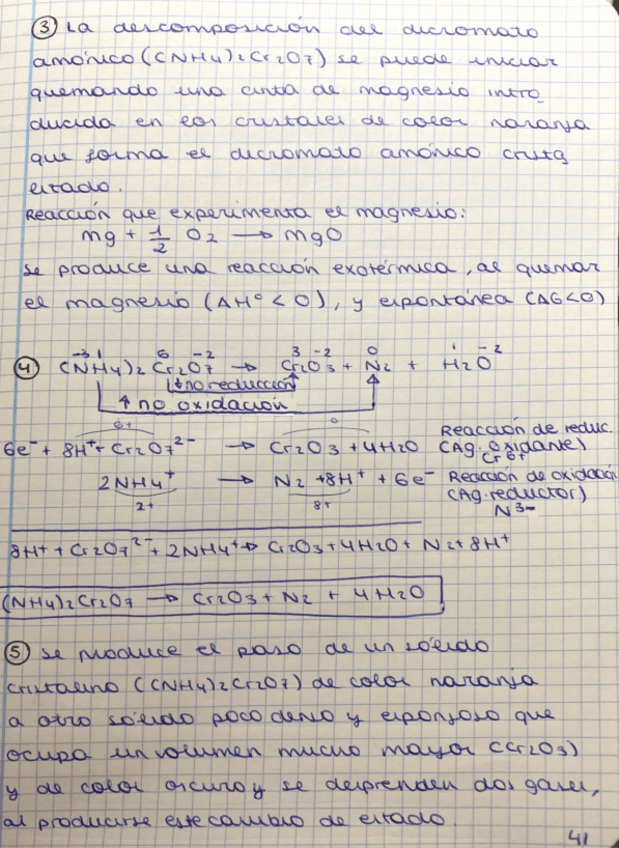 ③ La descomposición del dicromato
amónico ((NH4)2Cr2O7) se puede iniciar
quemando una cinta de magnesio intro
ducida en los cristales de color naranja
que forma el dicromato amónico crista
lizado.
Reacción que experimenta el magnesio:
Mg + 1/2 O2 → MgO
Se produce una reacción exotérmica, al quemar
el magnesio (ΔH° < 0), y espontánea (ΔG<0)
④ (NH4)2 Cr2O7 → Cr2O3 + N2 + H2O
-3 1 6 -2 3 -2 0 1 -2
↓ no reducción
↑ no oxidación
6+ 0
6e⁻ + 8H⁺ + Cr2O7²⁻ → Cr2O3 + 4H2O Reacción de reduc.
(Ag. oxidante)
Cr6+
2NH4⁺ → N2 + 8H⁺ + 6e⁻ Reacción de oxidación
2+ 8+ (Ag. reductor)
N3-
8H⁺ + Cr2O7²⁻ + 2NH4⁺ → Cr2O3 + 4H2O + N2 + 8H⁺
(NH4)2Cr2O7 → Cr2O3 + N2 + 4H2O
⑤ Se produce el paso de un sólido
cristalino ((NH4)2Cr2O7) de color naranja
a otro sólido poco denso y esponjoso que
ocupa un volumen mucho mayor (Cr2O3)
y de color oscuro y se desprenden dos gases,
al producirse este cambio de estado.
41